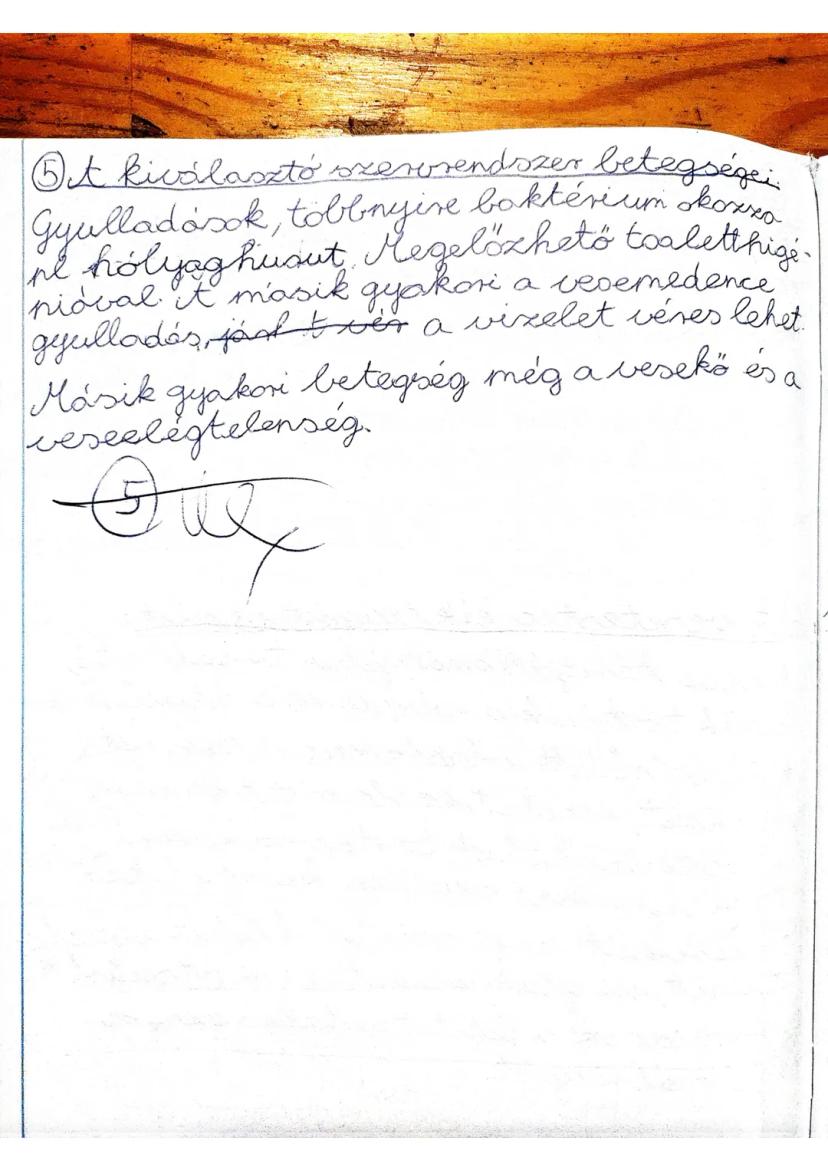 ⑤ A kiválasztó szervrendszer betegségei.
Gyulladások, többnyire baktérium okozza
pl hólyaghurut. Megelőzhető toaletthigé-
niával. A másik gyakori a vesemedence
gyulladás, a vizelet véres lehet.
Másik gyakori betegség még a vesekő és a
veseelégtelenség.
⑤